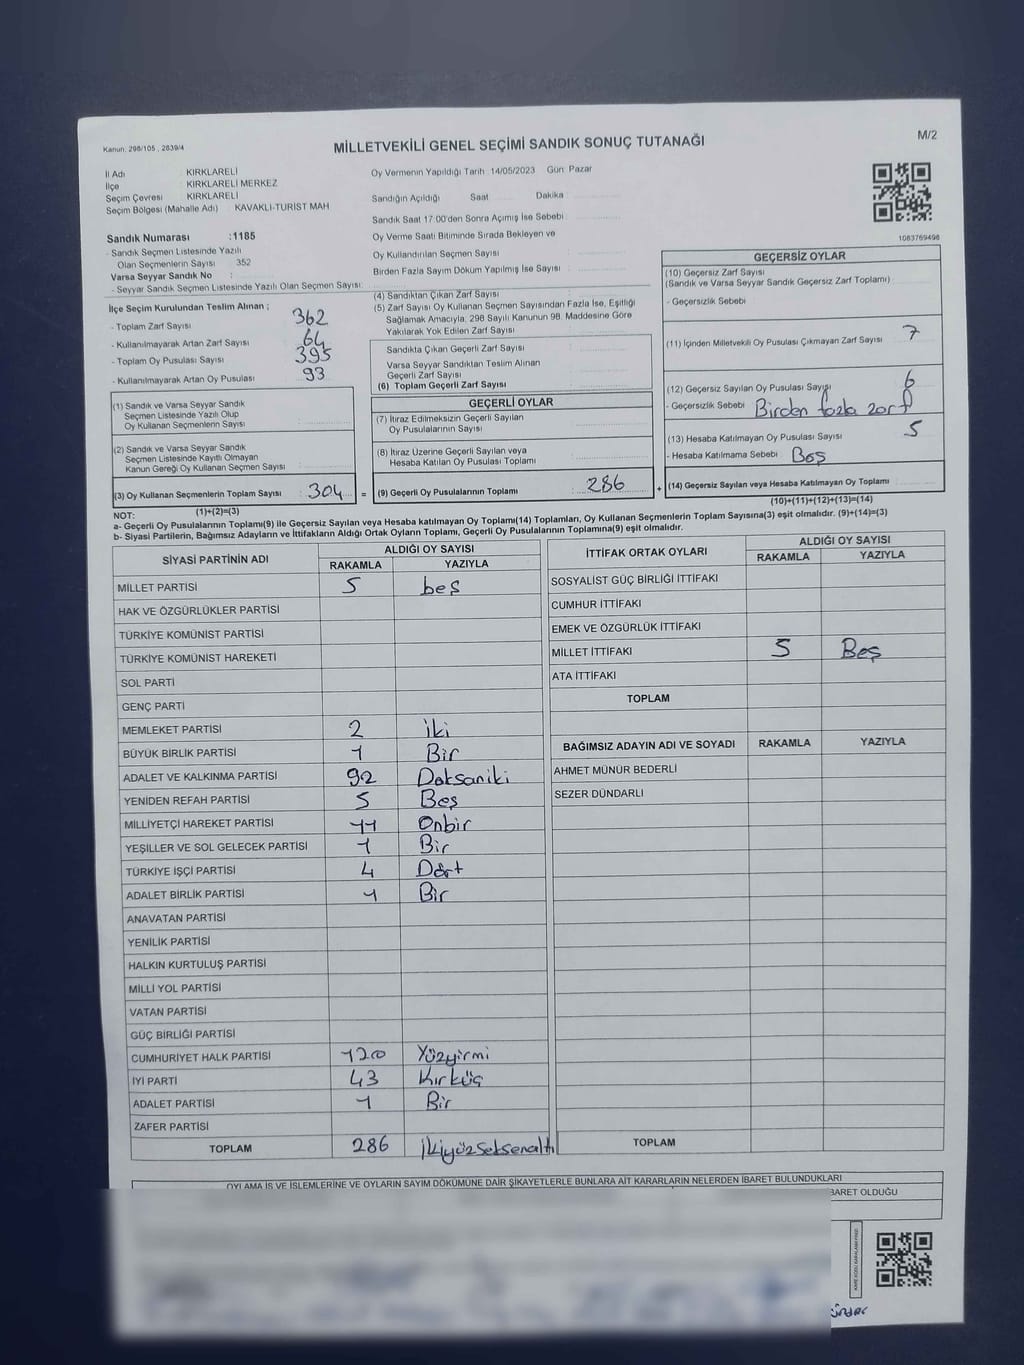 Kanun: 298/105 , 2839/4
MİLLETVEKİLİ GENEL SEÇİMİ SANDIK SONUÇ TUTANAĞI
M/2
İl Adı KIRKLARELİ
İlçe KIRKLARELİ MERKEZ
Seçim Çevresi KIRKLARELİ
Seçim Bölgesi (Mahalle Adı) KAVAKLI-TURİST MAH
Oy Vermenin Yapıldığı Tarih 14/05/2023 Gün: Pazar
Sandığın Açıldığı Saat Dakika
Sandık Saat 17:00'den Sonra Açımış İse Sebebi
Oy Verme Saati Bitiminde Sırada Bekleyen ve
Oy Kullandırılan Seçmen Sayısı
Birden Fazla Sayım Döküm Yapılmış İse Sayısı
Sandık Numarası :1185
- Sandık Seçmen Listesinde Yazılı
Olan Seçmenlerin Sayısı 352
Varsa Seyyar Sandık No :
- Seyyar Sandık Seçmen Listesinde Yazılı Olan Seçmen Sayısı:
1083769498
İlçe Seçim Kurulundan Teslim Alınan ;
- Toplam Zarf Sayısı 362
- Kullanılmayarak Artan Zarf Sayısı 64
- Toplam Oy Pusulası Sayısı 395
- Kullanılmayarak Artan Oy Pusulası 93
(1) Sandık ve Varsa Seyyar Sandık
Seçmen Listesinde Yazılı Olup
Oy Kullanan Seçmenlerin Sayısı :
(2) Sandık ve Varsa Seyyar Sandık
Seçmen Listesinde Kayıtlı Olmayan
Kanun Gereği Oy Kullanan Seçmen Sayısı :
(3) Oy Kullanan Seçmenlerin Toplam Sayısı : 304 =
(1)+(2)=(3)
(4) Sandıktan Çıkan Zarf Sayısı
(5) Zarf Sayısı Oy Kullanan Seçmen Sayısından Fazla İse, Eşitliği
Sağlamak Amacıyla; 298 Sayılı Kanunun 98. Maddesine Göre
Yakılarak Yok Edilen Zarf Sayısı
Sandıkta Çıkan Geçerli Zarf Sayısı :
Varsa Seyyar Sandıktan Teslim Alınan
Geçerli Zarf Sayısı
(6) Toplam Geçerli Zarf Sayısı
GEÇERLİ OYLAR
(7) İtiraz Edilmeksizin Geçerli Sayılan
Oy Pusulalarının Sayısı
(8) İtiraz Üzerine Geçerli Sayılan veya
Hesaba Katılan Oy Pusulası Toplamı
(9) Geçerli Oy Pusulalarının Toplamı : 286 +
GEÇERSİZ OYLAR
(10) Geçersiz Zarf Sayısı
(Sandık ve Varsa Seyyar Sandık Geçersiz Zarf Toplamı)
- Geçersizlik Sebebi
(11) İçinden Milletvekili Oy Pusulası Çıkmayan Zarf Sayısı 7
(12) Geçersiz Sayılan Oy Pusulası Sayısı 6
- Geçersizlik Sebebi Birden fazla zarf
(13) Hesaba Katılmayan Oy Pusulası Sayısı 5
- Hesaba Katılmama Sebebi : Boş
(14) Geçersiz Sayılan veya Hesaba Katılmayan Oy Toplamı
(10)+(11)+(12)+(13)=(14)
NOT:
a- Geçerli Oy Pusulalarının Toplamı(9) ile Geçersiz Sayılan veya Hesaba katılmayan Oy Toplamı(14) Toplamları, Oy Kullanan Seçmenlerin Toplam Sayısına(3) eşit olmalıdır. (9)+(14)=(3)
b- Siyasi Partilerin, Bağımsız Adayların ve İttifakların Aldığı Ortak Oyların Toplamı, Geçerli Oy Pusulalarının Toplamına(9) eşit olmalıdır.
SİYASİ PARTİNİN ADI ALDIĞI OY SAYISI
RAKAMLA YAZIYLA
MİLLET PARTİSİ 5 beş
HAK VE ÖZGÜRLÜKLER PARTİSİ
TÜRKİYE KOMÜNİST PARTİSİ
TÜRKİYE KOMÜNİST HAREKETİ
SOL PARTİ
GENÇ PARTİ
MEMLEKET PARTİSİ 2 iki
BÜYÜK BİRLİK PARTİSİ 1 Bir
ADALET VE KALKINMA PARTİSİ 92 Doksaniki
YENİDEN REFAH PARTİSİ 5 Beş
MİLLİYETÇİ HAREKET PARTİSİ 11 Onbir
YEŞİLLER VE SOL GELECEK PARTİSİ 1 Bir
TÜRKİYE İŞÇİ PARTİSİ 4 Dört
ADALET BİRLİK PARTİSİ 1 Bir
ANAVATAN PARTİSİ
YENİLİK PARTİSİ
HALKIN KURTULUŞ PARTİSİ
MİLLİ YOL PARTİSİ
VATAN PARTİSİ
GÜÇ BİRLİĞİ PARTİSİ
CUMHURİYET HALK PARTİSİ 120 Yüzyirmi
İYİ PARTİ 43 Kırküç
ADALET PARTİSİ 1 Bir
ZAFER PARTİSİ
TOPLAM 286 İkiyüzseksenaltı
İTTİFAK ORTAK OYLARI ALDIĞI OY SAYISI
RAKAMLA YAZIYLA
SOSYALİST GÜÇ BİRLİĞİ İTTİFAKI
CUMHUR İTTİFAKI
EMEK VE ÖZGÜRLÜK İTTİFAKI
MİLLET İTTİFAKI 5 Beş
ATA İTTİFAKI
TOPLAM
BAĞIMSIZ ADAYIN ADI VE SOYADI RAKAMLA YAZIYLA
AHMET MÜNÜR BEDERLİ
SEZER DÜNDARLI
TOPLAM
OYLAMA İŞ VE İŞLEMLERİNE VE OYLARIN SAYIM DÖKÜMÜNE DAİR ŞİKAYETLERLE BUNLARA AİT KARARLARIN NELERDEN İBARET BULUNDUKLARI
BARET OLDUĞU